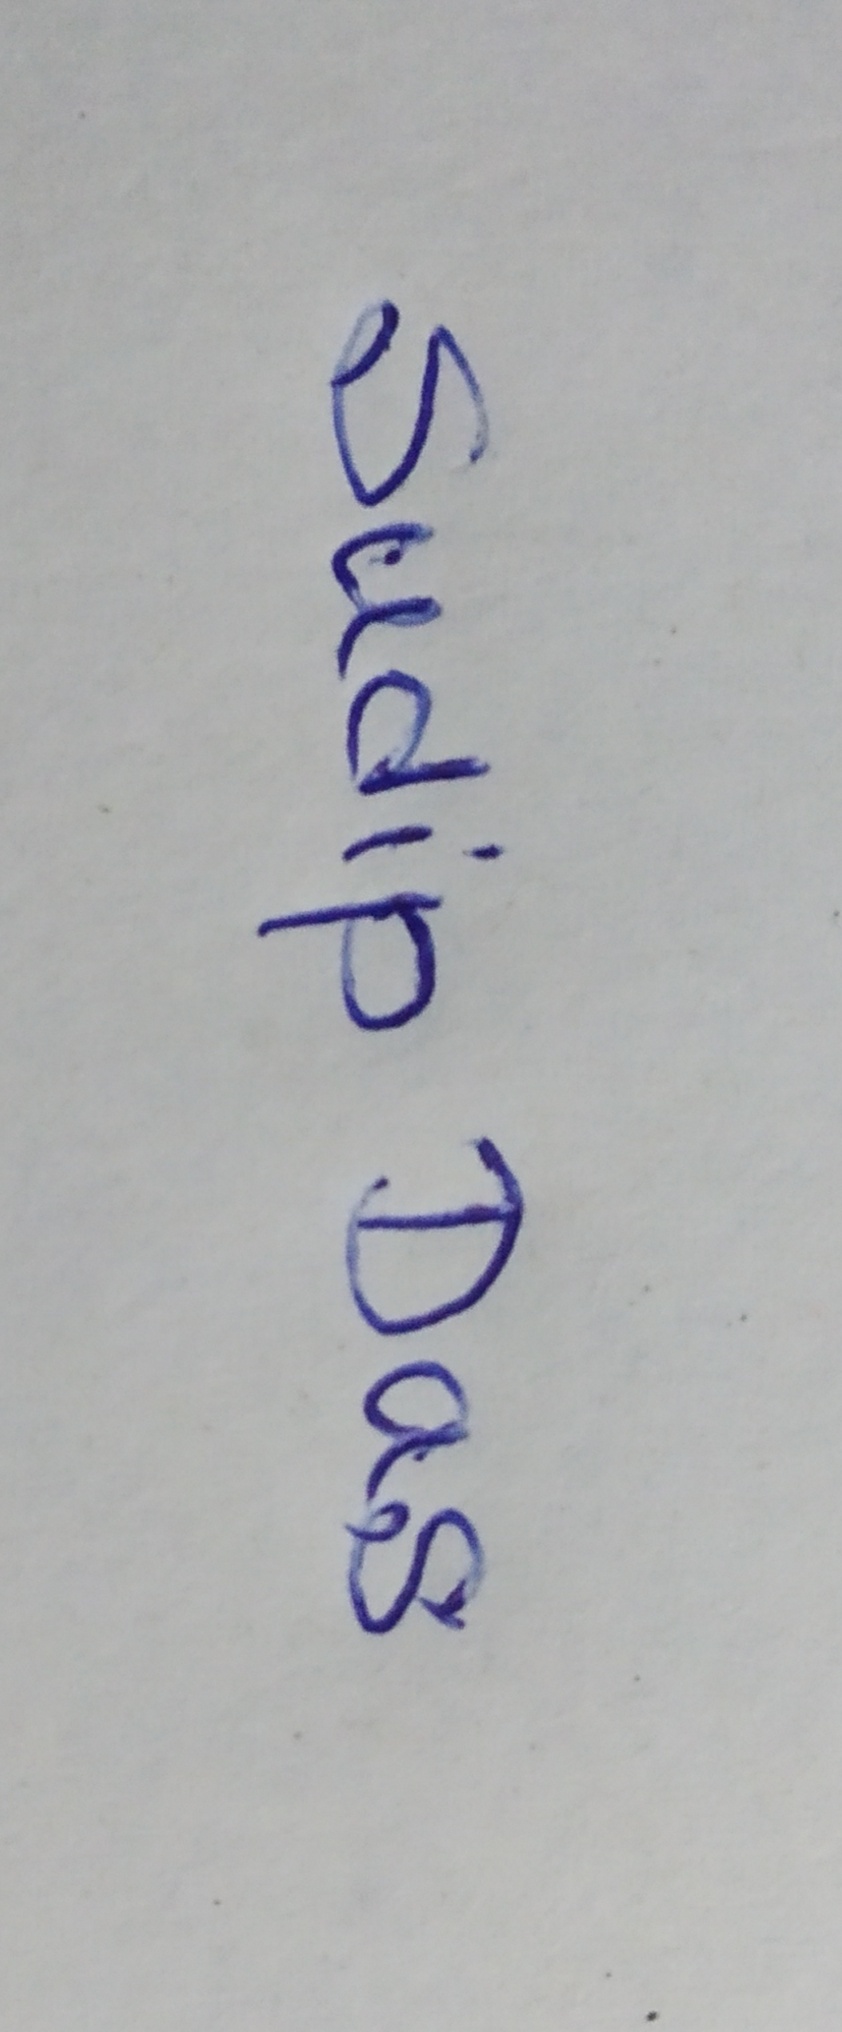 Sudip Das